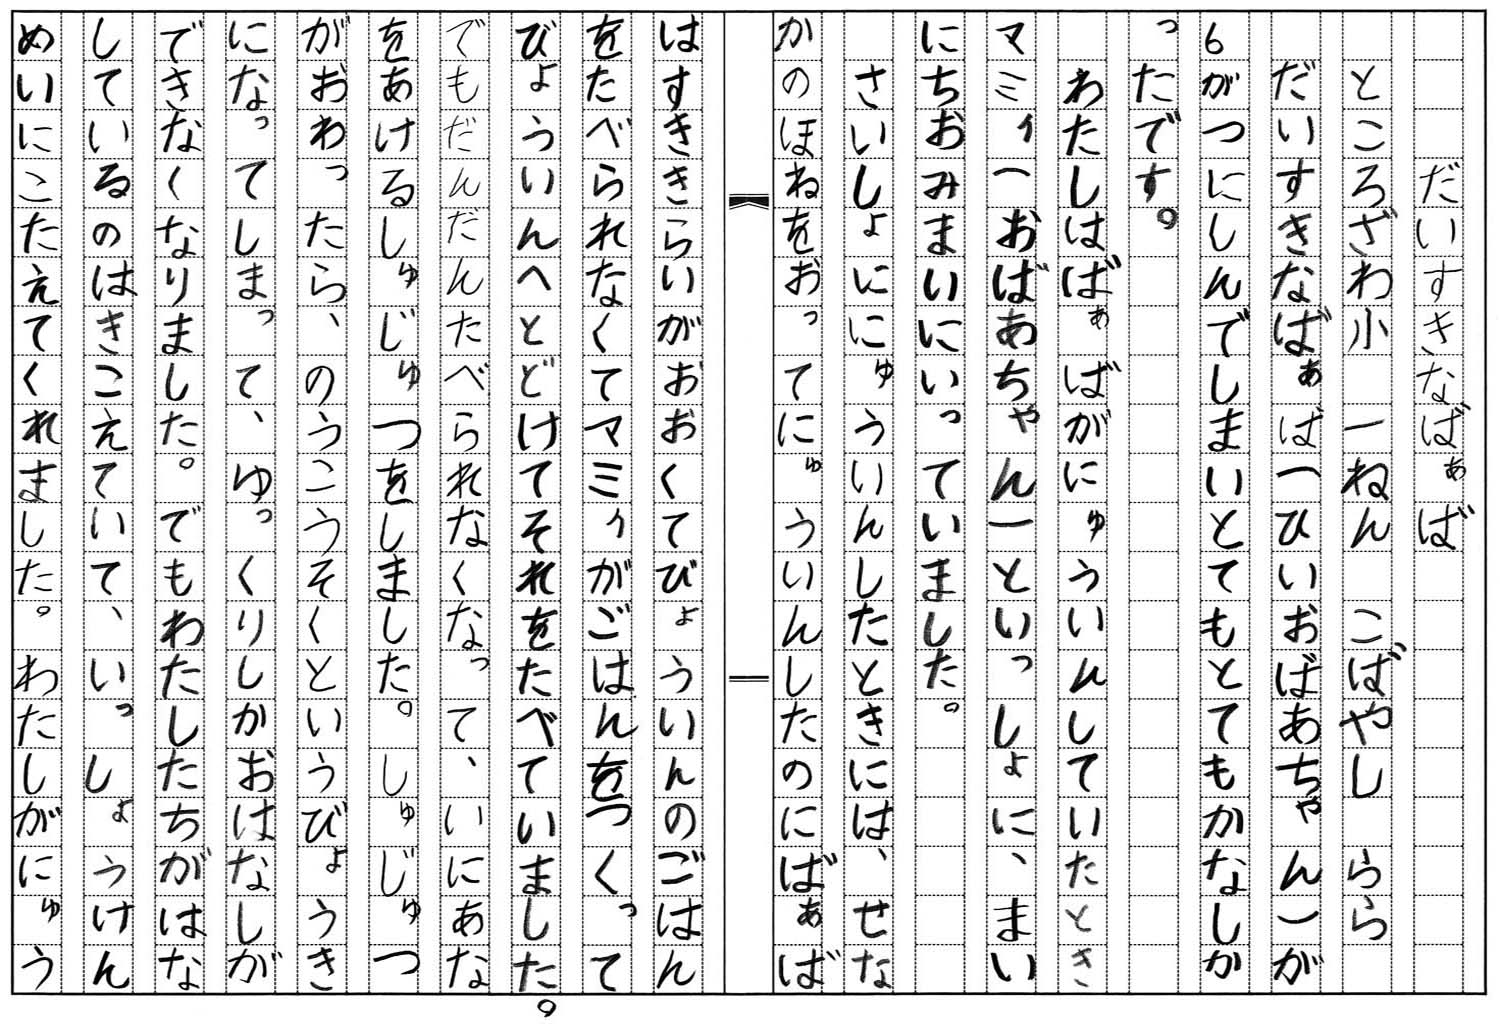 だいすきなばぁば
ところざわ小 一ねん こばやし らら
だいすきなばぁばーひいおばあちゃんーが
6がつにしんでしまいとてもとてもかなしか
ったです。
わたしはばぁばがにゅういんしていたとき
マミィーおばあちゃんーといっしょに、まい
にちおみまいにいっていました。
さいしょににゅういんしたときには、せな
かのほねをおってにゅういんしたのにばぁば
はすききらいがおおくてびょういんのごはん
をたべられなくてマミィがごはんをつくって
びょういんへとどけてそれをたべていました。
でもだんだんたべられなくなって、いにあな
をあけるしゅじゅつをしました。しゅじゅつ
がおわったら、のうこうそくというびょうき
になってしまって、ゆっくりしかおはなしが
できなくなりました。でもわたしたちがはな
しているのはきこえていて、いっしょうけん
めいにこたえてくれました。わたしがにゅう